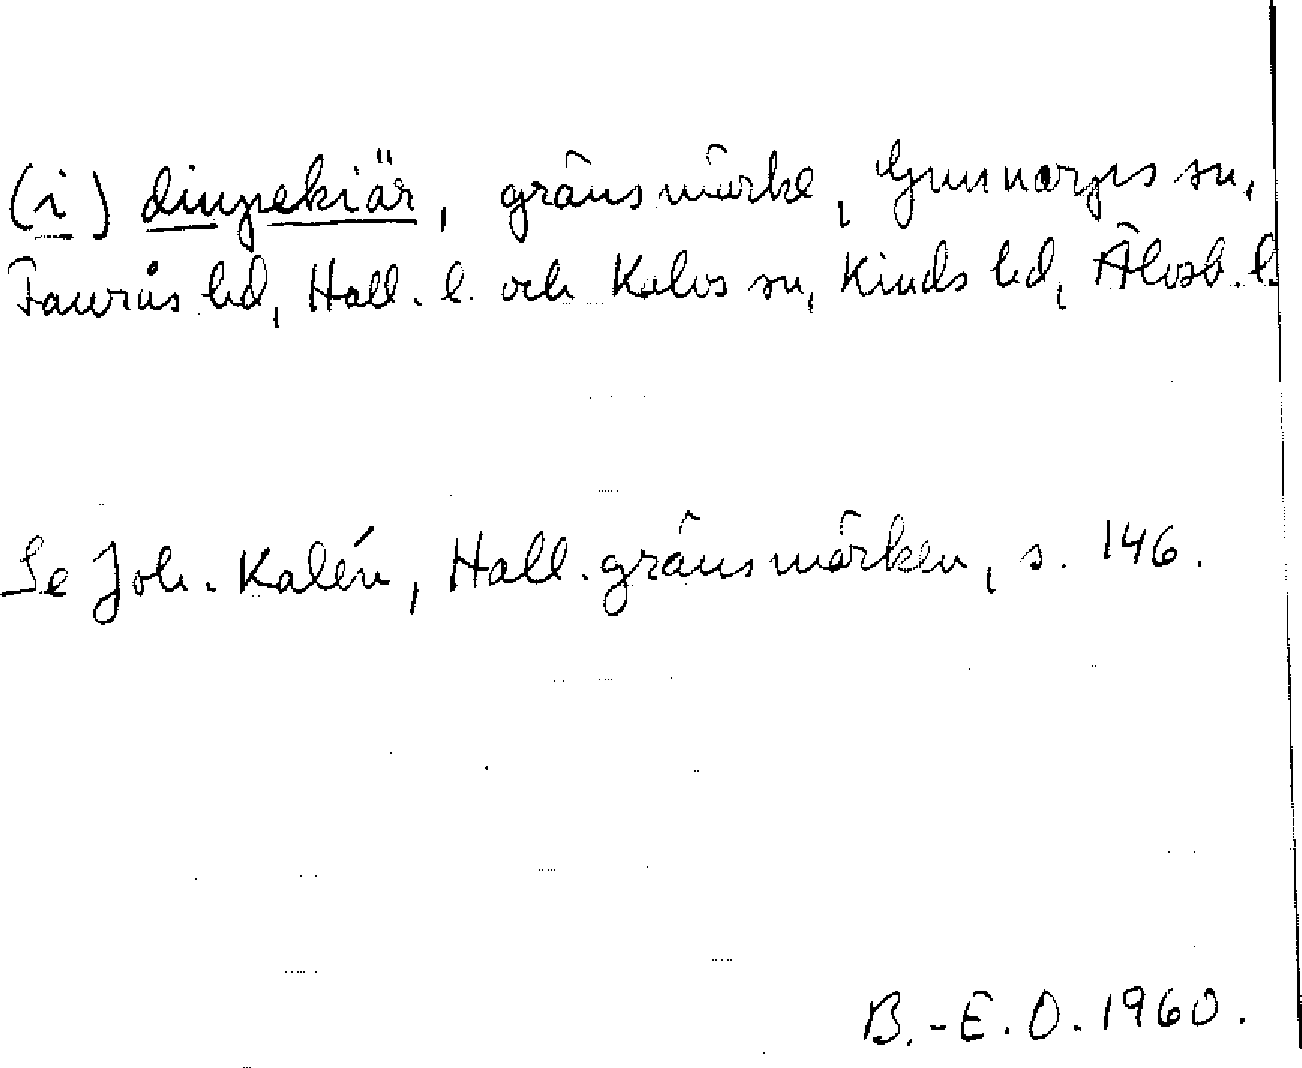 (i) dingiekiär, gränsmärke, Gunnarps sn,
Faurås hd, Hall. l. och Kalvs sn, Kinds hd, Älvsb. l.
Se Joh. Kalén, Hall. gränsmärken, s. 146.
B.-E. O. 1960.